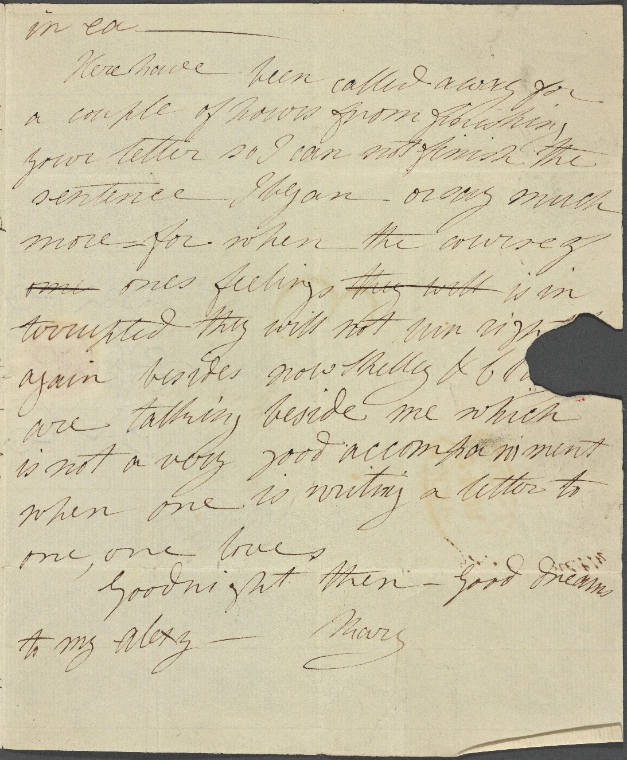 in ea
Here have been called away for
a couple of hours from finishing
your letter so I can not finish the
sentence I began or say much
more – for when the course of
one ones feelings they will is in
terrupted they will not run right
again besides now Shelley & Cl
are talking beside me which
is not a very good accompaniment
when one is writing a letter to
one, one loves
Goodnight then – Good dreams
to my Alexy — Mary